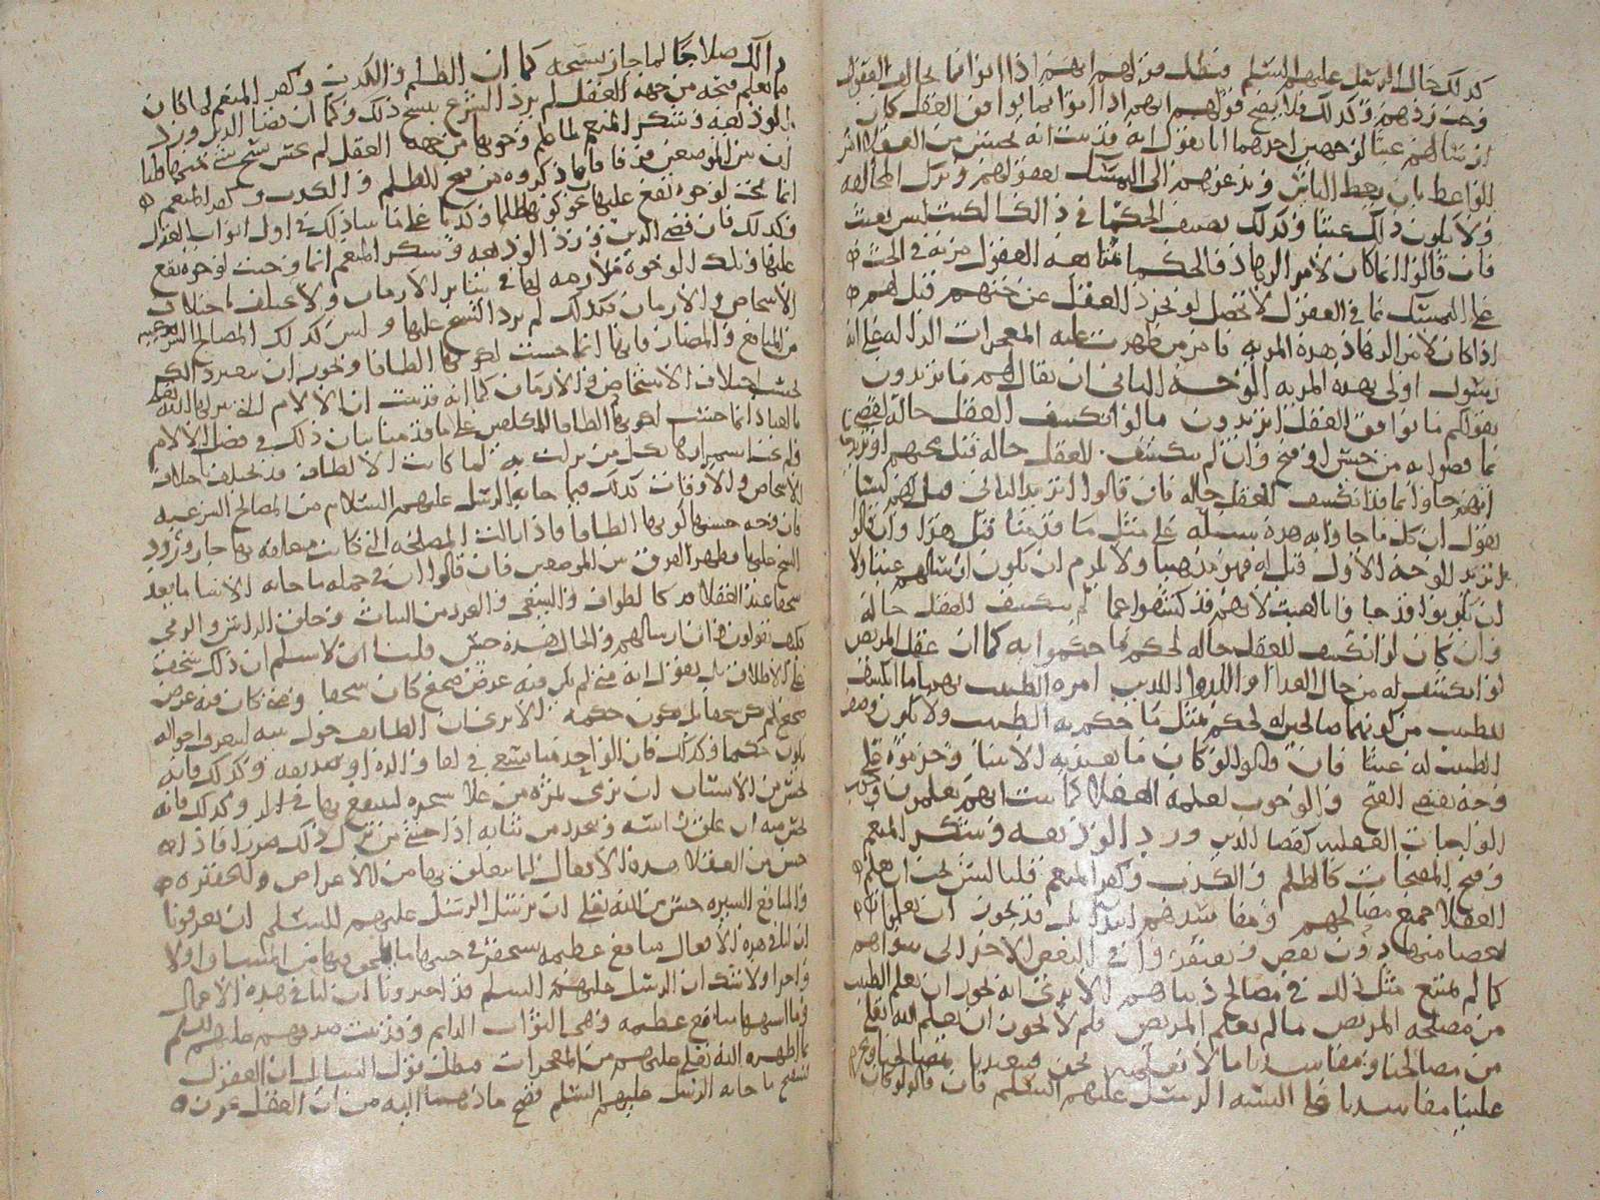 كذلك حال الرسل عليهم السلم فبطل قولهم انهم اذا اتوا بما يخالف العقول
وجب ردهم وكذلك فلا يصح قولهم انهم اذا اتوا بما يوافق العقل كان
ارسالهم عبثا لوجهين احدهما انا نقول انه قد ثبت انه يحسن من العقلا
الواعظ بان يعظ الناس ويدعوهم الى التمسك بعقولهم وترك المخالفه
ولا يكون ذلك عبثا وكذلك تصنيف الحكما في ذلك الكتب ليس بعبث
فان قالوا انما كان لامر الزهاد والحكما بمتابعه العقول مزيه في الحث
على التمسك بما في العقول لا تحصل لو تجرد العقل عن حثهم قيل لهم
اذا كان لامر الزهاد هذه المزيه فامر من ظهرت عليه المعجزات الداله على انه
رسول اولى بهذه المزيه الوجه الثاني ان يقال لهم ما تريدون
بقولكم ما يوافق العقل اتريدون ما لو انكشف للعقل حاله لقضى
بما قضوا به من حسن او قبح وان لم ينكشف للعقل حاله قبل مجيهم او تريدون
انهم جاوا بما قد انكشف للعقل حاله فان قالوا نريد الثاني قيل لهم لسنا
نقول ان كل ما جاوا به هذه سبيله على مثل ما قدمنا قبل هذا وان قالوا
بل نريد الوجه الاول قيل له فهو مذهبنا ولا يلزم ان يكون ارسالهم عبثا ولا
ان يكونوا قد جاوا بالعبث لانهم قد كشفوا عما لم ينكشف للعقل حاله
وان كان لو انكشف للعقل حاله لحكم بما حكموا به كما ان عقل المريض
لو انكشف له من حال الغذا والدوا الذي امره الطبيب بهما ما انكشف
للطبيب من كونهما صالحين له لحكم بمثل ما حكم به الطبيب ولا يكون وصف
الطبيب له عبثا فان قالوا لو كان ما تعبد به الانبيا وحرموه على
وجه يقتضي القبح والوجوب لعلمه العقلا كما ثبت انهم يعلمون وجوب
الواجبات العقليه كقضا الدين ورد الوديعه وشكر المنعم
وقبح المقبحات كالظلم والكذب وكفر المنعم قلنا ليس يجب ان يعلم
العقلا جميع مصالحهم ومفاسدهم بل قد يجوز ان يعلموا
بعضا منها دون بعض ويفتقروا في البعض الاخر الى سواهم
كما لم يمتنع مثل ذلك في مصالح دنياهم الا ترى انه يجوز ان يعلم الطبيب
من مصلحه المريض ما لم يعلم المريض فلم لا يجوز ان يعلم الله تعلى
من مصالحنا ومفاسدنا ما لا نعلمه نحن
علينا مفاسدنا على السنه الرسل عليهم السلم فان قالوا لو كان
ذلك صلاحا لما جاز نسخه كما ان الظلم والكذب وكفر المنعم لما كان
ما يعلم قبحه من جهه العقل لم يرد الشرع بنسخ ذلك وكما ان قضا الدين ورد
الوديعه وشكر المنعم لما علم وجوبها من جهه العقل لم يحسن نسخ شي منها قلنا
ان بين الموضعين فرقا فان ما ذكروه من قبح للظلم والكذب وكفر المنعم
انما يجب لوجوه تقع عليها نحو كونها ظلما وكذبا على ما سياتي ذلك في اول ابواب العدل
وكذلك فان قضى الدين ورد الوديعه وشكر المنعم انما وجبت لوجوه تقع
عليها وتلك الوجوه ملازمه لها في ساير الازمان ولا تختلف باختلاف
الاشخاص والازمان فكذلك لم يرد النسخ عليها وليس كذلك المصالح الشرعيه
من المنافع والمضار فانها انما حسنت لكونها الطافا
بحسب اختلاف الاشخاص والازمان كما انه قد ثبت ان الالام التي ينزلها الله تعلى
بالعباد انما حسنت لكونها الطافا للمكلفين على ما قدمنا بيان ذلك في فصل الالام
ولم يجب استمرارها بكل من نزلت به لما كانت الالطاف قد تختلف باختلاف
الاشخاص والاوقات كذلك فيما جا به الرسل عليهم السلام من المصالح الشرعيه
فان وجه حسنها كونها الطافا فاذا زالت المصلحه التي كانت متعلقه بها جاز ورود
النسخ عليها فظهر الفرق بين الموضعين فان قالوا ان في جمله ما جا به الانبيا ما يعد
سخفا عند العقلا كالطواف والسعي والتجرد من الثياب وحلق الراس والرمي
فكيف تقولون ان ارسالهم والحال هذه حسن قلنا انا لا نسلم ان ذلك سخف
على الاطلاق بل نقول انه متى لم يكن فيه غرض صحيح كان سخفا ومتى كان فيه غرض
صحيح لم يكن سخفا بل يكون حكمه الا ترى ان الطايف حول بيته ليعرف احواله
يكون حكيما وكذلك فان الواحد منا يسعى في لقا والده او صديقه وكذلك فانه
يحسن من الانسان ان يرمي بثمره من علا شجره لينتفع بها وكذلك فانه
يحسن منه ان يحلق راسه ويتجرد من ثيابه اذا خشي من ترك ذلك ضررا فاذا
حسن من العقلا هذه الافعال لما يتعلق بها من الاغراض
والمنافع اليسيره حسن من الله تعلى ان يرسل الرسل عليهم السلم ان يعرفونا
ان لنا في هذه الافعال منافع عظيمه يستحقر في جنبها ما يلحق فيها من المشاق اولا
واحرا ولا شك ان الرسل عليهم السلم قد اخبرونا ان لنا في هذه الاعمال
وما اشبهها منافع عظيمه وهي الثواب الدايم وقد ثبت صدقهم عليهم السلم
بما اظهره الله تعلى عليهم من المعجزات فبطل قول السايل ان العقول
تستقبح ما جا به الرسل عليهم السلم فصح ما ذهبنا اليه من ان العقل